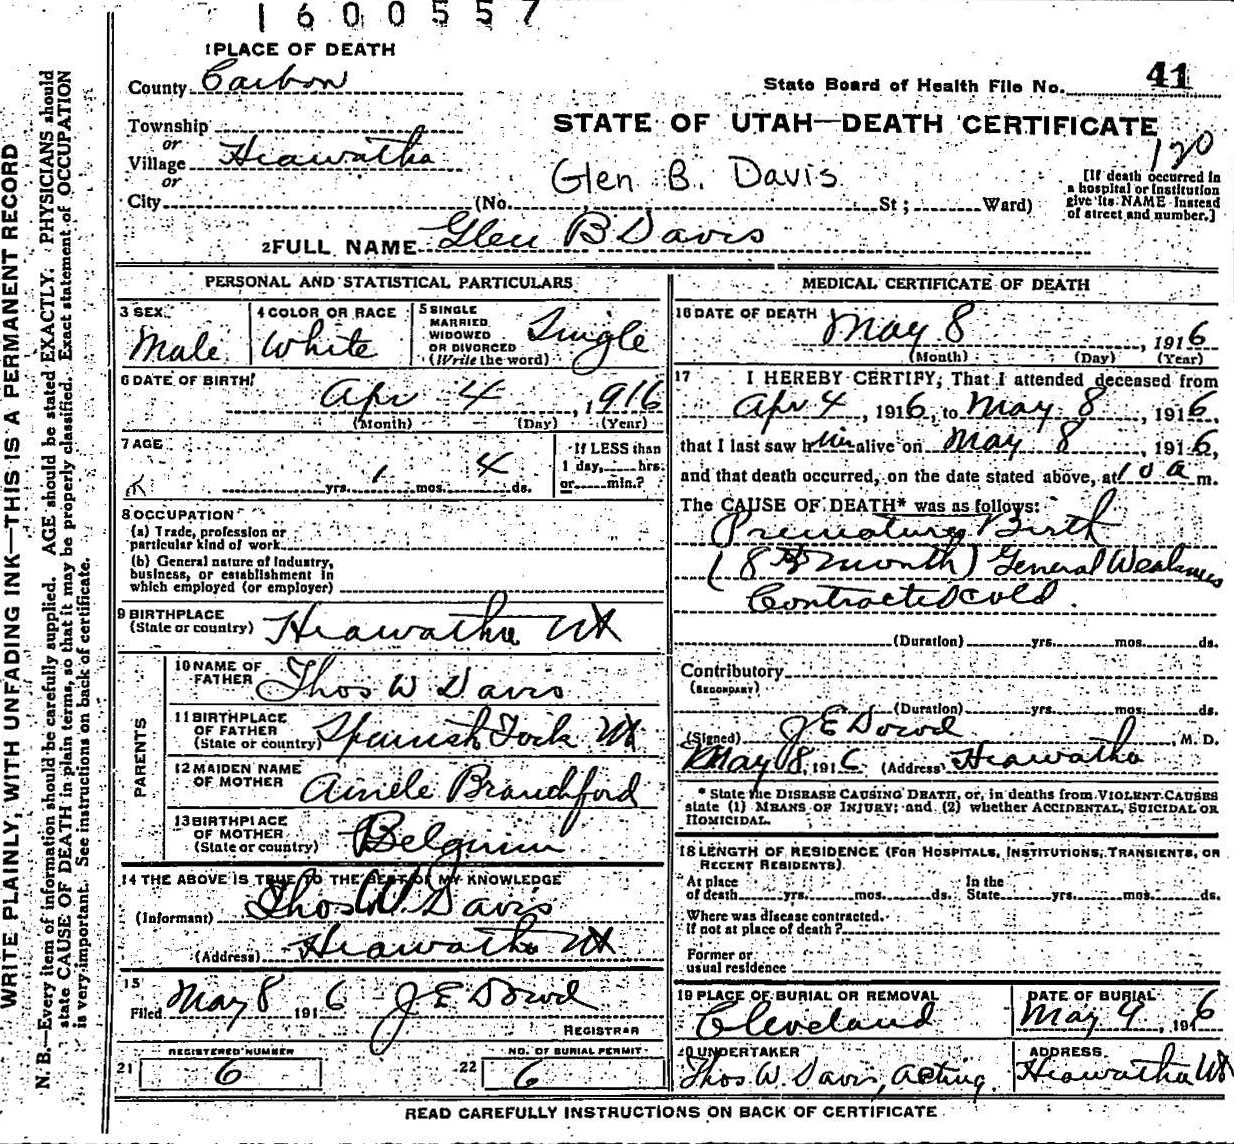 1600557
1 PLACE OF DEATH
County Carbon
State Board of Health File No. 41
Township
or
Village Hiawatha
or
City (No. St; Ward)
STATE OF UTAH—DEATH CERTIFICATE
120
Glen B. Davis
[If death occurred in
a hospital or institution
give its NAME instead
of street and number.]
2 FULL NAME Glen B Davis
PERSONAL AND STATISTICAL PARTICULARS
3 SEX Male
4 COLOR OR RACE White
5 SINGLE
MARRIED
WIDOWED
OR DIVORCED
(Write the word) Single
6 DATE OF BIRTH
Apr 4, 1916
(Month) (Day) (Year)
7 AGE
yrs. 1 mos. 4 ds.
If LESS than
1 day, hrs.
or min.?
8 OCCUPATION
(a) Trade, profession or
particular kind of work
(b) General nature of industry,
business, or establishment in
which employed (or employer)
9 BIRTHPLACE
(State or country) Hiawatha Ut
PARENTS
10 NAME OF
FATHER Thos W Davis
11 BIRTHPLACE
OF FATHER
(State or country) Spanish Fork Ut
12 MAIDEN NAME
OF MOTHER Branchford
13 BIRTHPLACE
OF MOTHER
(State or country) Belgium
14 THE ABOVE IS TRUE TO THE BEST OF MY KNOWLEDGE
(Informant) Thos W. Davis
(Address) Hiawatha Ut
15
Filed May 8 1916 J E Dowd
REGISTRAR
REGISTERED NUMBER
21 6
NO. OF BURIAL PERMIT
22 6
MEDICAL CERTIFICATE OF DEATH
16 DATE OF DEATH
May 8, 1916
(Month) (Day) (Year)
17 I HEREBY CERTIFY, That I attended deceased from
Apr 4, 1916, to May 8, 1916,
that I last saw him alive on May 8, 1916,
and that death occurred, on the date stated above, at 10 a m.
The CAUSE OF DEATH* was as follows:
Premature Birth
(8th month) General Weakness
Contracted cold.
(Duration) yrs. mos. ds.
Contributory
(SECONDARY)
(Duration) yrs. mos. ds.
(Signed) J E Dowd, M. D.
May 8, 1916 (Address) Hiawatha
* State the DISEASE CAUSING DEATH, or, in deaths from VIOLENT CAUSES
state (1) MEANS OF INJURY; and (2) whether ACCIDENTAL, SUICIDAL OR
HOMICIDAL.
18 LENGTH OF RESIDENCE (FOR HOSPITALS, INSTITUTIONS, TRANSIENTS, OR
RECENT RESIDENTS).
At place
of death yrs. mos. ds.
In the
State yrs. mos. ds.
Where was disease contracted.
If not at place of death?
Former or
usual residence
19 PLACE OF BURIAL OR REMOVAL
Cleveland
DATE OF BURIAL
May 9, 1916
20 UNDERTAKER
Thos W. Davis, Acting.
ADDRESS
Hiawatha Ut
READ CAREFULLY INSTRUCTIONS ON BACK OF CERTIFICATE
WRITE PLAINLY, WITH UNFADING INK—THIS IS A PERMANENT RECORD
N. B.—Every item of information should be carefully supplied. AGE should be stated EXACTLY. PHYSICIANS should
state CAUSE OF DEATH in plain terms, so that it may be properly classified. Exact statement of OCCUPATION
is very important. See instructions on back of certificate.